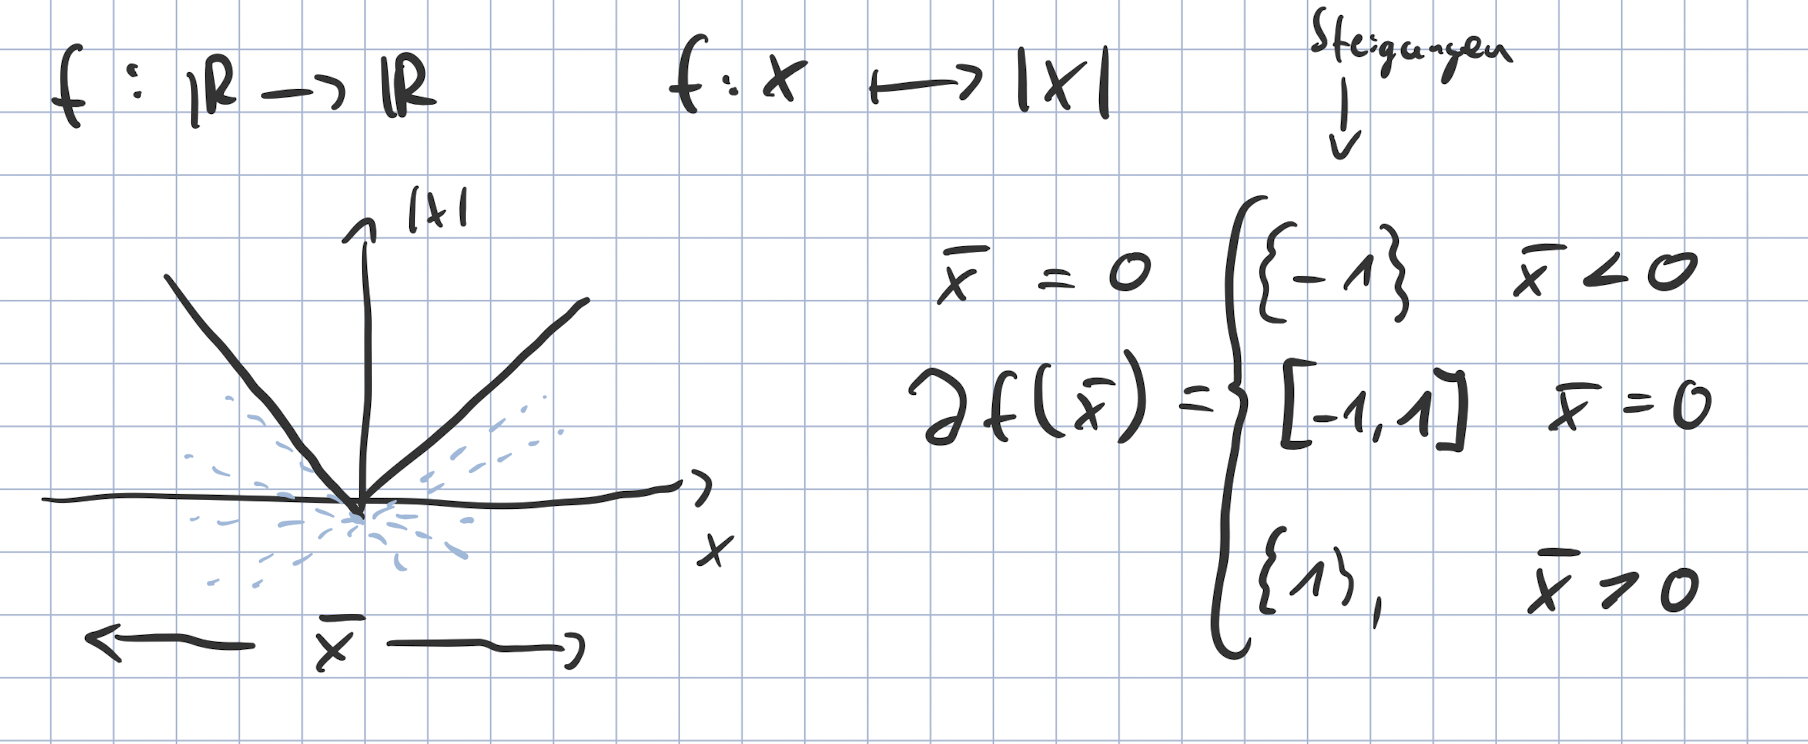 f : ℝ → ℝ f : x ⟼ |x| Steigungen
↓
|x|
x̄ = 0 { {-1} x̄ < 0
∂f(x̄) = { [-1,1] x̄ = 0
x
{ {1}, x̄ > 0
← x̄ →